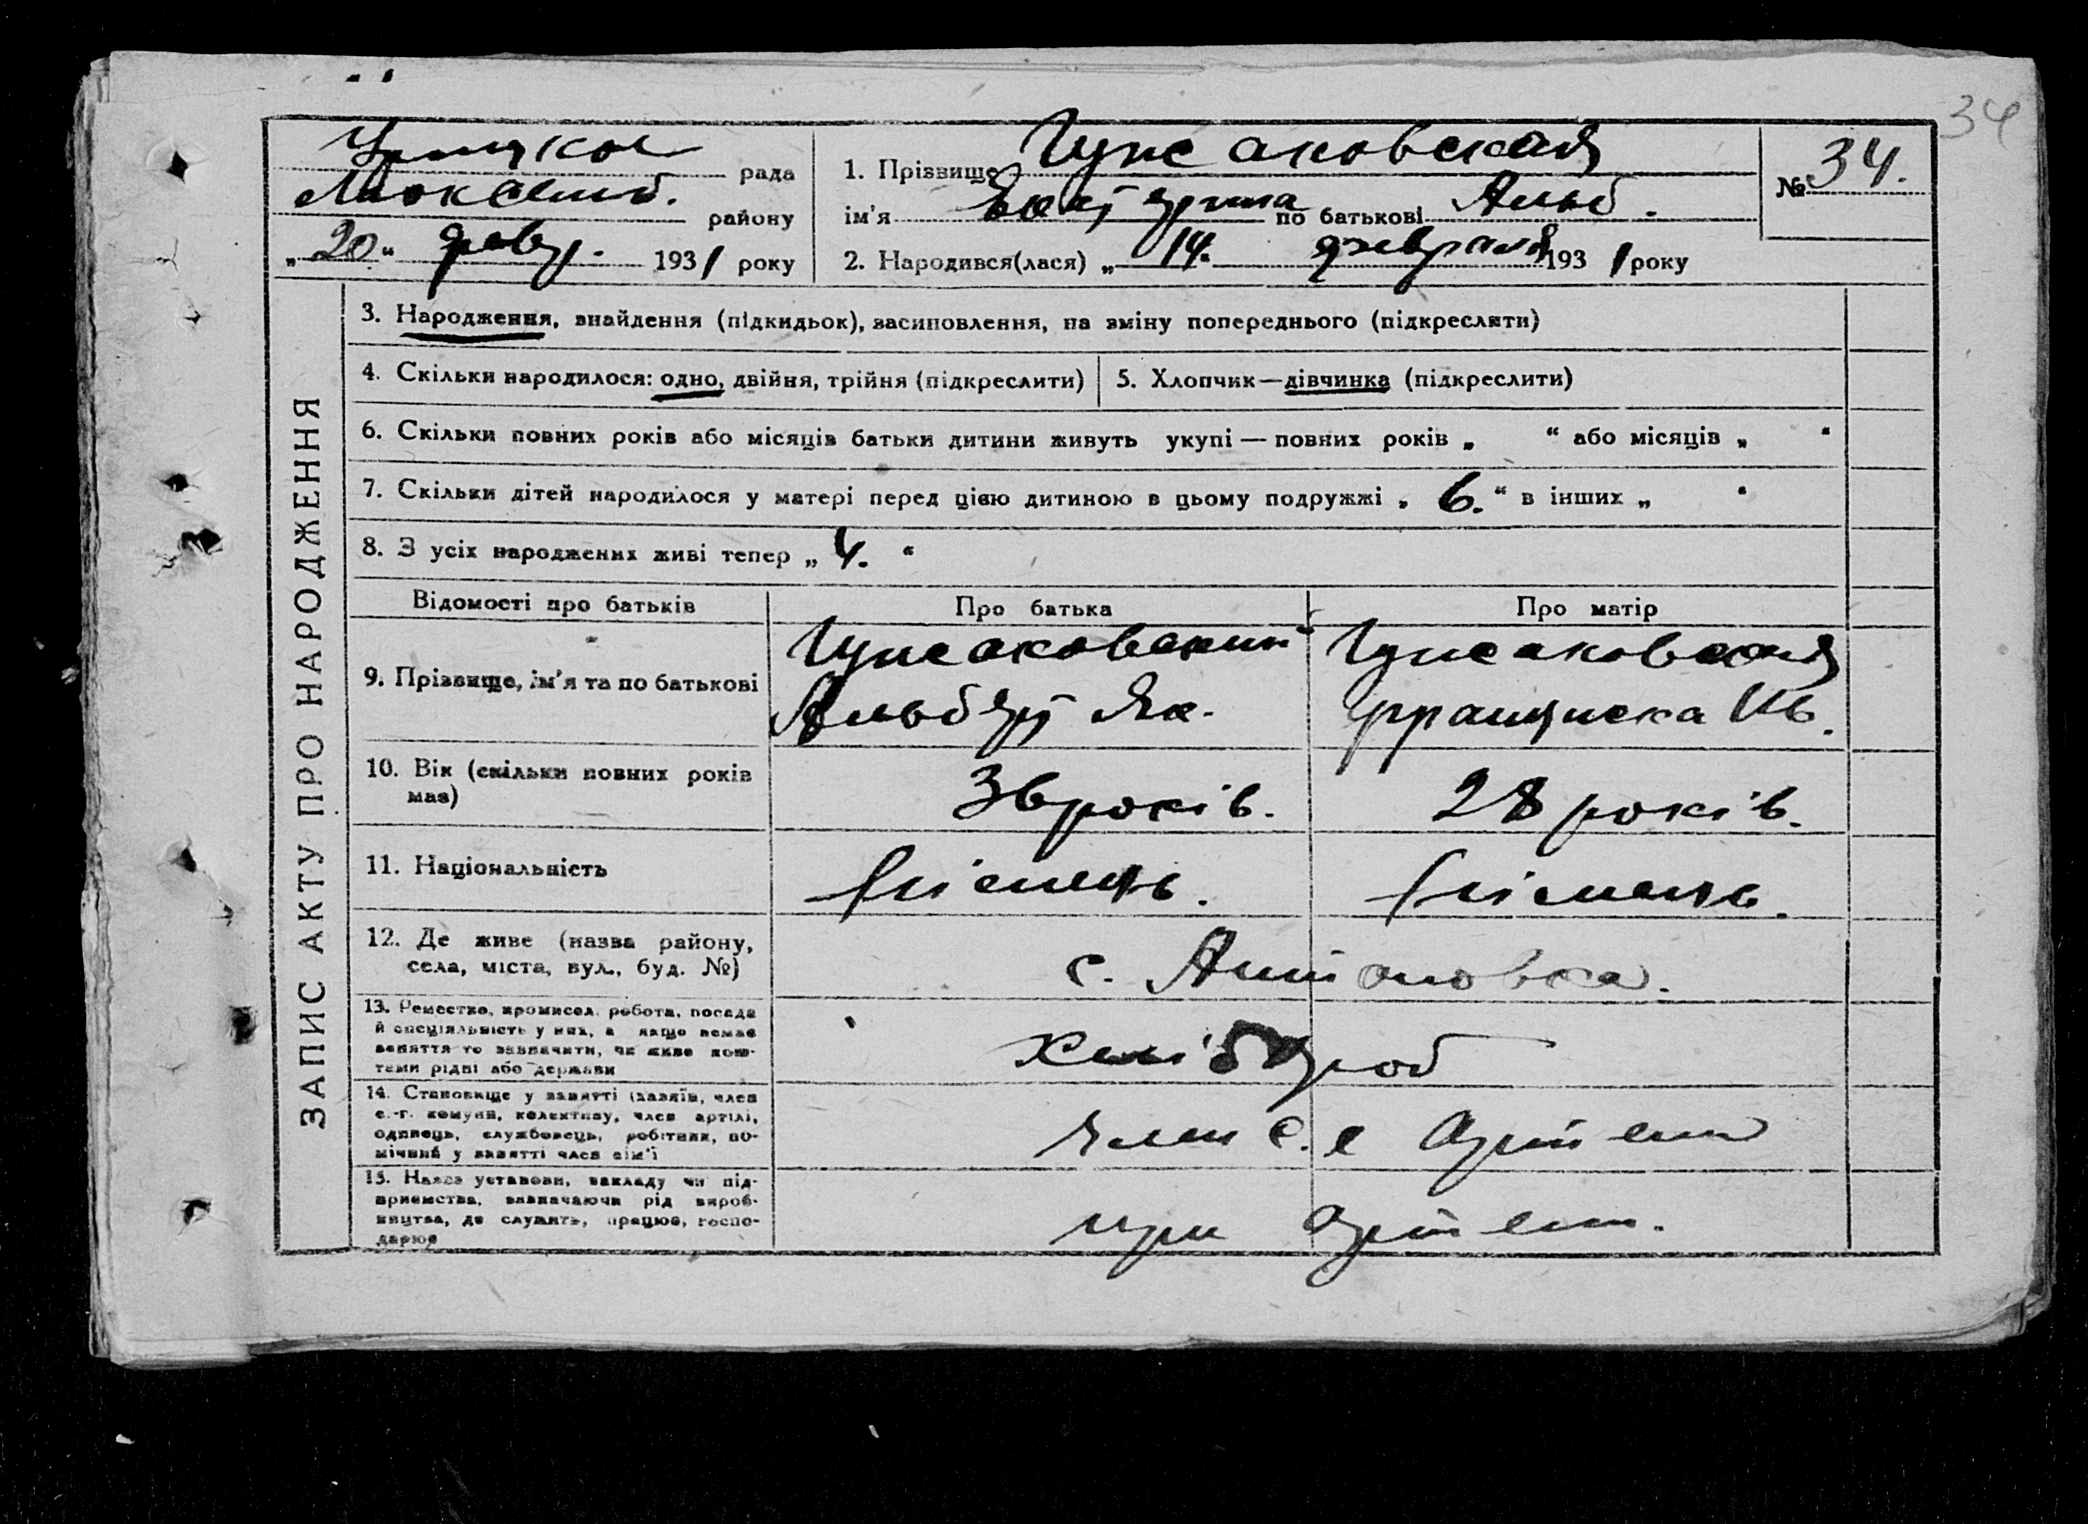 34
рада
району
„ 20 “ февр. 1931 року
1. Прізвище
ім'я по батькові Альб.
№ 34.
2. Народився(лася) „ 14. февраля 1931 року
ЗАПИС АКТУ ПРО НАРОДЖЕННЯ
3. Народження, знайдення (підкидьок), засиновлення, на зміну попереднього (підкреслити)
4. Скільки народилося: одно, двійня, трійня (підкреслити)
5. Хлопчик—дівчинка (підкреслити)
6. Скільки повних років або місяців батьки дитини живуть укупі — повних років „ “ або місяців „ “
7. Скільки дітей народилося у матері перед цією дитиною в цьому подружжі „ 6. “ в інших „ “
8. З усіх народжених живі тепер „ 4. “
Відомості про батьків
Про батька
Про матір
9. Прізвище, ім'я та по батькові
Альберт Як.
Франциска Ив.
10. Вік (скільки повних років
має)
36 років.
28 років.
11. Національність
німець.
німець.
12. Де живе (назва району,
села, міста, вул., буд. №)
с. Антоновка.
13. Ремество, промисел, робота, посада
й спеціяльність у них, а якщо немає
заняття то зазначити, чи живе кош-
тами рідні або держави
хлібороб
14. Становище у занятті (хазяїн, член
с.-г. комуни, колективу, член артілі,
одинець, службовець, робітник, по-
мічний у занятті член сім'ї
член с. г артели
15. Назва установи, закладу чи під-
приємства, зазначаючи рід вироб-
ництва, де служить, працює, госпо-
дарює
при артели.